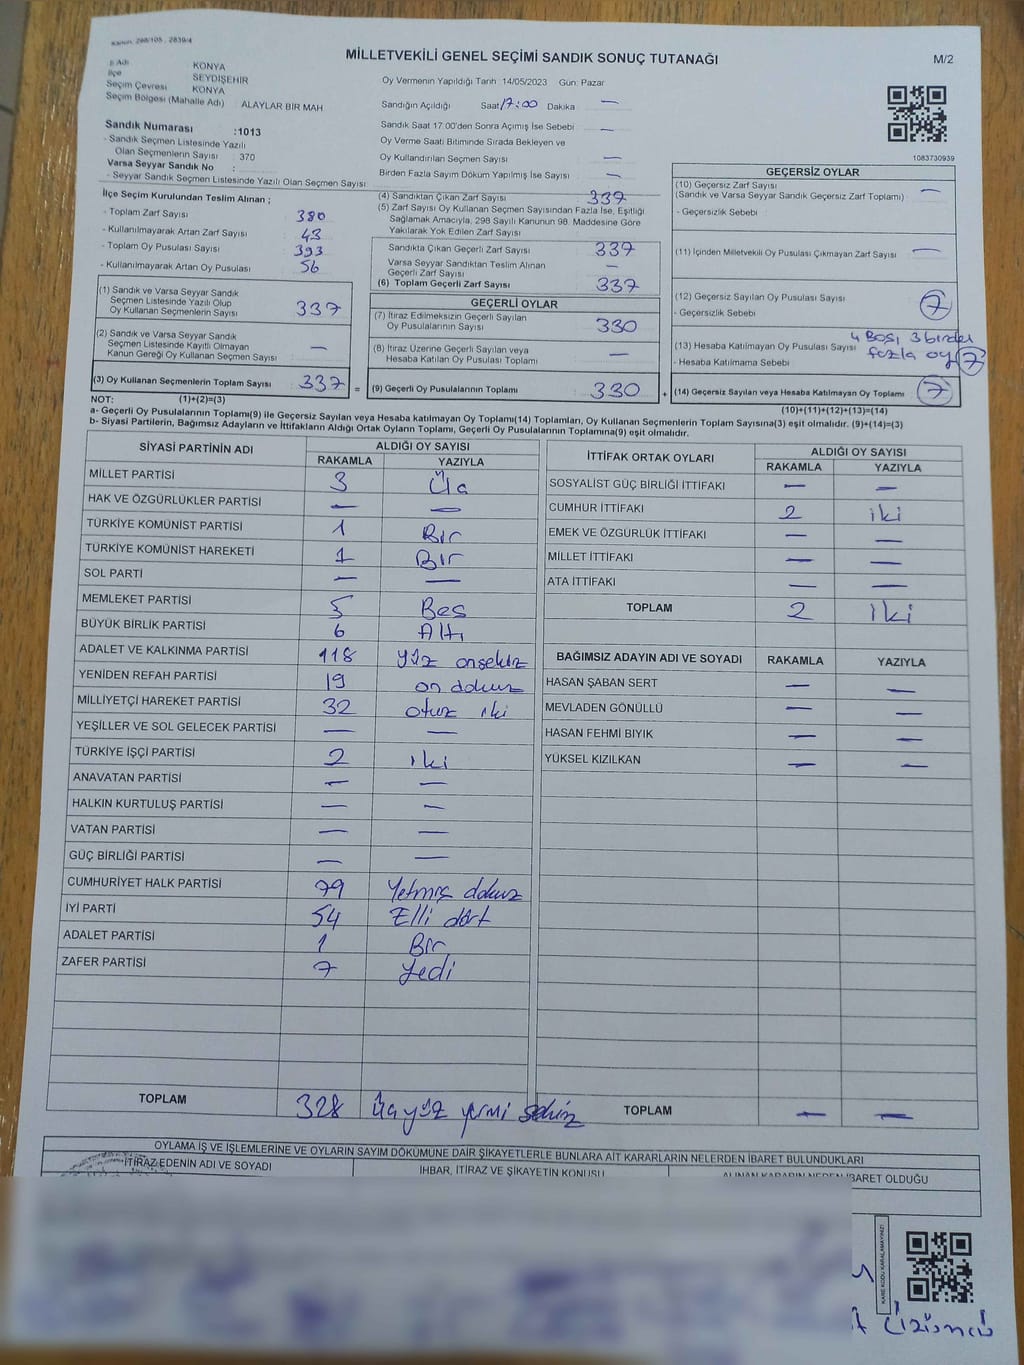 Kanun, 298/105, 2839/4
MİLLETVEKİLİ GENEL SEÇİMİ SANDIK SONUÇ TUTANAĞI
M/2
İl Adı KONYA
İlçe SEYDİŞEHİR
Seçim Çevresi KONYA
Seçim Bölgesi (Mahalle Adı) ALAYLAR BİR MAH
Oy Vermenin Yapıldığı Tarih :14/05/2023 Gün: Pazar
Sandığın Açıldığı Saat 17:00 Dakika —
Sandık Saat 17:00'den Sonra Açımış İse Sebebi —
Oy Verme Saati Bitiminde Sırada Bekleyen ve
Oy Kullandırılan Seçmen Sayısı —
Birden Fazla Sayım Döküm Yapılmış İse Sayısı —
1083730939
Sandık Numarası :1013
- Sandık Seçmen Listesinde Yazılı
Olan Seçmenlerin Sayısı : 370
Varsa Seyyar Sandık No :
- Seyyar Sandık Seçmen Listesinde Yazılı Olan Seçmen Sayısı
İlçe Seçim Kurulundan Teslim Alınan ;
- Toplam Zarf Sayısı : 380
- Kullanılmayarak Artan Zarf Sayısı : 43
- Toplam Oy Pusulası Sayısı : 393
- Kullanılmayarak Artan Oy Pusulası : 56
(1) Sandık ve Varsa Seyyar Sandık
Seçmen Listesinde Yazılı Olup
Oy Kullanan Seçmenlerin Sayısı : 337
(2) Sandık ve Varsa Seyyar Sandık
Seçmen Listesinde Kayıtlı Olmayan
Kanun Gereği Oy Kullanan Seçmen Sayısı : —
(3) Oy Kullanan Seçmenlerin Toplam Sayısı : 337 =
(4) Sandıktan Çıkan Zarf Sayısı : 337
(5) Zarf Sayısı Oy Kullanan Seçmen Sayısından Fazla İse, Eşitliği
Sağlamak Amacıyla, 298 Sayılı Kanunun 98. Maddesine Göre
Yakılarak Yok Edilen Zarf Sayısı :
Sandıkta Çıkan Geçerli Zarf Sayısı : 337
Varsa Seyyar Sandıktan Teslim Alınan
Geçerli Zarf Sayısı : —
(6) Toplam Geçerli Zarf Sayısı : 337
GEÇERLİ OYLAR
(7) İtiraz Edilmeksizin Geçerli Sayılan
Oy Pusulalarının Sayısı : 330
(8) İtiraz Üzerine Geçerli Sayılan veya
Hesaba Katılan Oy Pusulası Toplamı : —
(9) Geçerli Oy Pusulalarının Toplamı : 330 +
GEÇERSİZ OYLAR
(10) Geçersiz Zarf Sayısı : —
(Sandık ve Varsa Seyyar Sandık Geçersiz Zarf Toplamı)
- Geçersizlik Sebebi :
(11) İçinden Milletvekili Oy Pusulası Çıkmayan Zarf Sayısı : —
(12) Geçersiz Sayılan Oy Pusulası Sayısı : 7
- Geçersizlik Sebebi : 4 Boş, 3 birden
(13) Hesaba Katılmayan Oy Pusulası Sayısı : fazla oy 7
- Hesaba Katılmama Sebebi :
(14) Geçersiz Sayılan veya Hesaba Katılmayan Oy Toplamı : 7
NOT: (1)+(2)=(3)
(10)+(11)+(12)+(13)=(14)
a- Geçerli Oy Pusulalarının Toplamı(9) ile Geçersiz Sayılan veya Hesaba katılmayan Oy Toplamı(14) Toplamları, Oy Kullanan Seçmenlerin Toplam Sayısına(3) eşit olmalıdır. (9)+(14)=(3)
b- Siyasi Partilerin, Bağımsız Adayların ve İttifakların Aldığı Ortak Oyların Toplamı, Geçerli Oy Pusulalarının Toplamına(9) eşit olmalıdır.
SİYASİ PARTİNİN ADI ALDIĞI OY SAYISI
RAKAMLA YAZIYLA
MİLLET PARTİSİ 3 Üç
HAK VE ÖZGÜRLÜKLER PARTİSİ — —
TÜRKİYE KOMÜNİST PARTİSİ 1 Bir
TÜRKİYE KOMÜNİST HAREKETİ 1 Bir
SOL PARTİ — —
MEMLEKET PARTİSİ 5 Beş
BÜYÜK BİRLİK PARTİSİ 6 Altı
ADALET VE KALKINMA PARTİSİ 118 yüz onsekiz
YENİDEN REFAH PARTİSİ 19 on dokuz
MİLLİYETÇİ HAREKET PARTİSİ 32 otuz iki
YEŞİLLER VE SOL GELECEK PARTİSİ — —
TÜRKİYE İŞÇİ PARTİSİ 2 iki
ANAVATAN PARTİSİ — —
HALKIN KURTULUŞ PARTİSİ — —
VATAN PARTİSİ — —
GÜÇ BİRLİĞİ PARTİSİ — —
CUMHURİYET HALK PARTİSİ 79 Yetmiş dokuz
İYİ PARTİ 54 Elli dört
ADALET PARTİSİ 1 Bir
ZAFER PARTİSİ 7 Yedi
TOPLAM 328 Üçyüz yirmi sekiz
İTTİFAK ORTAK OYLARI ALDIĞI OY SAYISI
RAKAMLA YAZIYLA
SOSYALİST GÜÇ BİRLİĞİ İTTİFAKI — —
CUMHUR İTTİFAKI 2 iki
EMEK VE ÖZGÜRLÜK İTTİFAKI — —
MİLLET İTTİFAKI — —
ATA İTTİFAKI — —
TOPLAM 2 iki
BAĞIMSIZ ADAYIN ADI VE SOYADI RAKAMLA YAZIYLA
HASAN ŞABAN SERT — —
MEVLADEN GÖNÜLLÜ — —
HASAN FEHMİ BIYIK — —
YÜKSEL KIZILKAN — —
TOPLAM — —
OYLAMA İŞ VE İŞLEMLERİNE VE OYLARIN SAYIM DÖKÜMÜNE DAİR ŞİKAYETLERLE BUNLARA AİT KARARLARIN NELERDEN İBARET BULUNDUKLARI
İTİRAZ EDENİN ADI VE SOYADI İHBAR, İTİRAZ VE ŞİKAYETİN KONUSU ALINAN KARARIN NEDEN İBARET OLDUĞU
KARE KODU KARALAMAYINIZ!